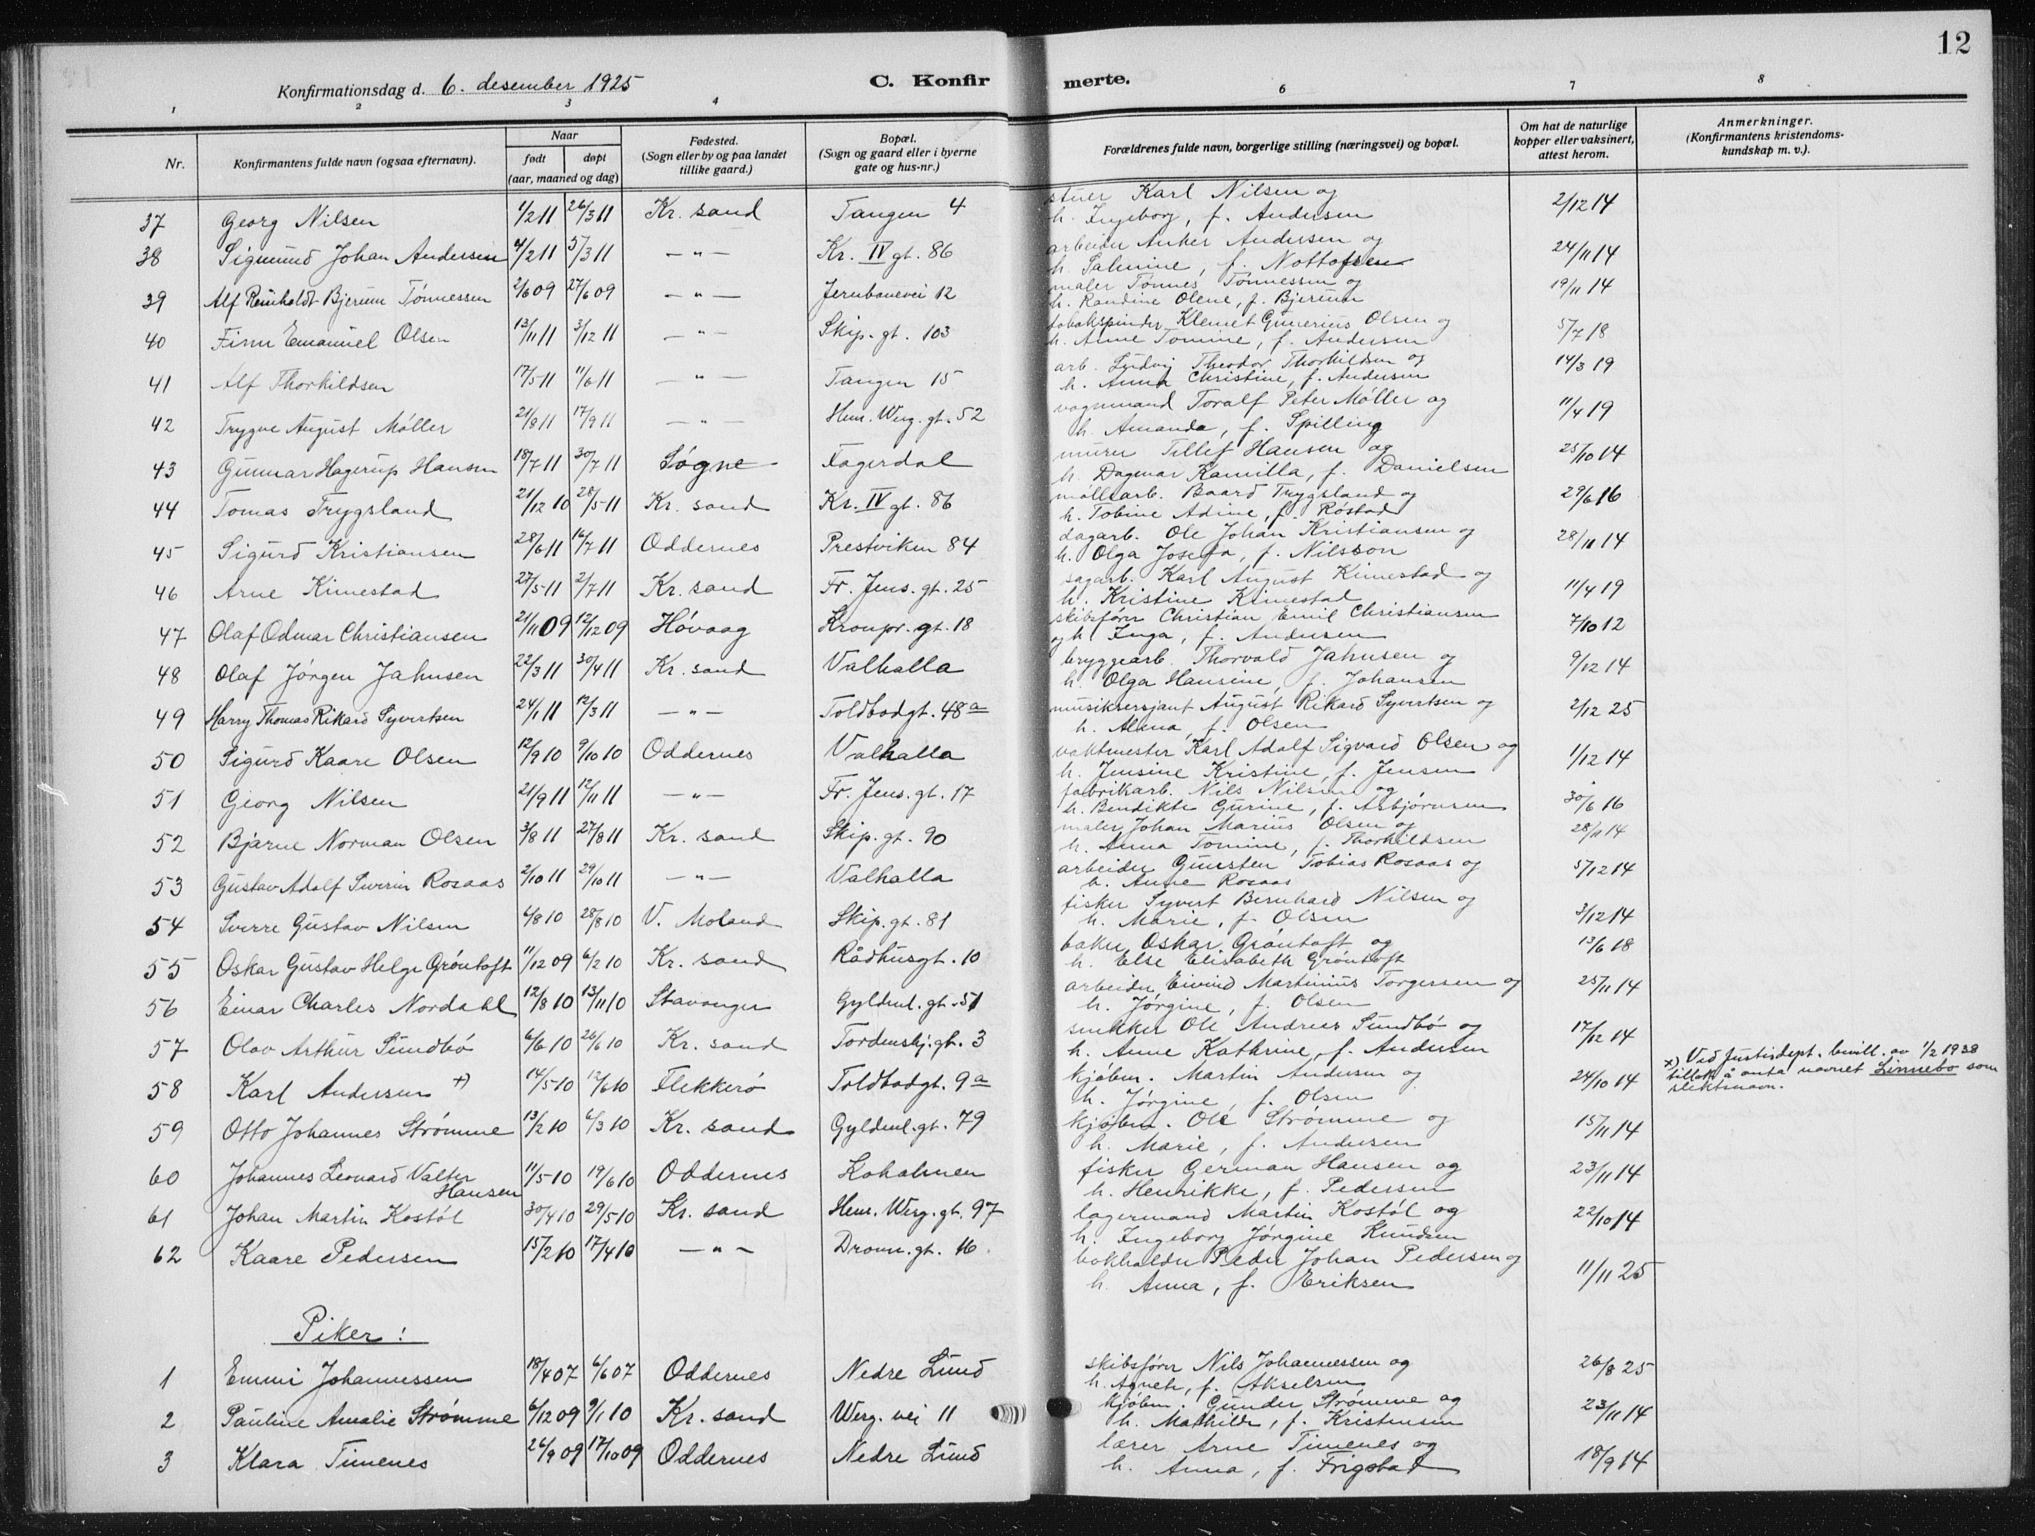 12
Konfirmationsdag d. 6. desember 1925
C. Konfirmerte.
1 2 3 4 6 7 8
Nr. Konfirmantens fulde navn (ogsaa efternavn). Naar født døpt (aar, maaned og dag) Fødested. (Sogn eller by og paa landet tillike gaard.) Bopæl. (Sogn og gaard eller i byerne gate og hus-nr.) Forældrenes fulde navn, borgerlige stilling (næringsvei) og bopæl. Om hat de naturlige kopper eller vaksinert, attest herom. Anmerkninger. (Konfirmantens kristendoms-kundskap m. v.).
37 Georg Nilsen 1/2 11 26/3 11 Kr. sand Tangen 4 stuer Karl Nilsen og 2/12 14
h. Ingeborg, f. Andersen
38 Sigmund Johan Andersen 4/2 11 5/3 11 —"— Kr. IV gt. 86 arbeider Anker Andersen og 24/11 14
h. Salmine, f. Nottofsen
39 Alf Reinholdt Bjerum Tønnessen 2/6 09 27/6 09 —"— Jernbanevei 12 maler Tønnes Tønnessen og 19/11 14
h. Randine Olene, f. Bjerum
40 Finn Emanuel Olsen 13/11 11 3/12 11 —"— Skip. gt. 103 tobakspinder Klemet Gunerius Olsen og 5/7 18
h. Anne Tomine, f. Andersen
41 Alf Thorkildsen 17/5 11 11/6 11 —"— Tangen 15 arb. Ludvig Theodor Thorkildsen og 14/3 19
h. Anna Christine, f. Andersen
42 Trygve August Møller 21/8 11 17/9 11 —"— Hem. Werg. gt. 52 vognmand Toralf Peter Møller og 11/4 19
h. Amanda, f. Spilling
43 Gunnar Hagerup Hansen 18/7 11 30/7 11 Søgne Fagerdal murer Tellef Hansen og 25/10 14
h. Dagmar Kamilla, f. Danielsen
44 Tomas Trygsland 21/12 10 28/5 11 Kr. sand Kr. IV gt. 86 møllearb. Baard Trygsland og 29/6 16
h. Tobine Adine, f. Røstad
45 Sigurd Kristiansen 28/6 11 16/7 11 Oddernes Prestviken 84 dagarb. Ole Johan Kristiansen og 28/11 14
h. Olga Josefa, f. Nilsson
46 Arne Kimestad 27/5 11 2/7 11 Kr. sand Fr. Jens. gt. 25 sagarb. Karl August Kimestad og 11/4 19
h. Kristine Kimestad
47 Olaf Odmar Christiansen 21/11 09 12/12 09 Høvaag Kronpr. gt. 18 skibsfører Christian Emil Christiansen 7/10 12
og h. Inga, f. Andersen
48 Olaf Jørgen Jahnsen 22/3 11 30/4 11 Kr. sand Valhalla bryggearb. Thorvald Jahnsen og 9/12 14
h. Olga Hansine, f. Johansen
49 Harry Thomas Rikard Syvertsen 24/1 11 12/3 11 —"— Toldbodgt. 48a musiksersjant August Rikard Syvertsen og 2/12 25
h. Alma, f. Olsen
50 Sigurd Kaare Olsen 12/9 10 9/10 10 Oddernes Valhalla vaktmester Karl Adolf Sigvard Olsen og 1/12 14
h. Jensine Kristine, f. Jensen
51 Georg Nilsen 21/9 11 12/11 11 —"— Fr. Jens. gt. 17 fabrikarb. Nils Nilsen og 30/6 16
h. Bendikte Gurine, f. Asbjørnsen
52 Bjarne Norman Olsen 3/8 11 27/8 11 Kr. sand Skip. gt. 90 maler Johan Marius Olsen og 28/11 14
h. Anna Tomine, f. Thorkildsen
53 Gustav Adolf Severin Rosaas 2/10 11 29/10 11 —"— Valhalla arbeider Gunsten Tobias Rosaas og 5/12 14
h. Anne Rosaas
54 Sverre Gustav Nilsen 4/8 10 28/8 10 V. Moland Skip. gt. 81 fisker Syvert Bernhard Nilsen og 3/12 14
h. Marie, f. Olsen
55 Oskar Gustav Helge Grøntoft 11/12 09 6/2 10 Kr. sand Rådhusgt. 10 baker Oskar Grøntoft og 13/6 18
h. Else Elisabeth Grøntoft
56 Einar Charles Nordahl 12/8 10 13/11 10 Stavanger Gyldenl. gt. 51 arbeider Eivind Martinius Torgersen og 25/11 14
h. Jørgine, f. Olsen
57 Olav Arthur Sundbø 6/6 10 26/6 10 Kr. sand Tordenskj. gt. 3 snekker Ole Andreas Sundbø og 17/12 14
h. Anne Kathrine, f. Andersen
58 Karl Andersen x) 14/5 10 12/6 10 Flekkerø Toldbodgt. 9a kjøbm. Martin Andersen og 24/10 14 x) Ved Justisdept. bevill. av 1/2 1938
h. Jørgine, f. Olsen tillatt å anta navnet Linnebo som
slektsnavn.
59 Otto Johannes Strømme 13/2 10 6/3 10 Kr. sand Gyldenl. gt. 79 kjøbm. Ole Strømme og 15/11 14
h. Marie, f. Andersen
60 Johannes Leonard Valter 11/5 10 19/6 10 Oddernes Koholmen fisker German Hansen og 23/11 14
Hansen h. Henrikke, f. Pedersen
61 Johan Martin Kostøl 30/4 10 29/5 10 Kr. sand Hem. Werg. gt. 97 lagermand Martin Kostøl og 22/10 14
h. Ingeborg Jørgine Knudsen
62 Kaare Pedersen 15/2 10 17/4 10 —"— Dronn. gt. 16 bokholder Peder Johan Pedersen og 11/11 25
h. Anna, f. Eriksen
Piker:
1 Emmi Johannessen 18/4 07 6/6 07 Oddernes Nedre Lund skibsfører Nils Johannessen og 26/8 25
h. Agnete, f. Akselsen
2 Pauline Amalie Strømme 6/12 09 9/1 10 Kr. sand Werg. vei 11 kjøbm. Gunder Strømme og 23/11 14
h. Mathilde, f. Kristensen
3 Klara Timenes 26/9 09 17/10 09 Oddernes Nedre Lund lærer Arne Timenes og 18/9 14
h. Anna, f. Frigstad